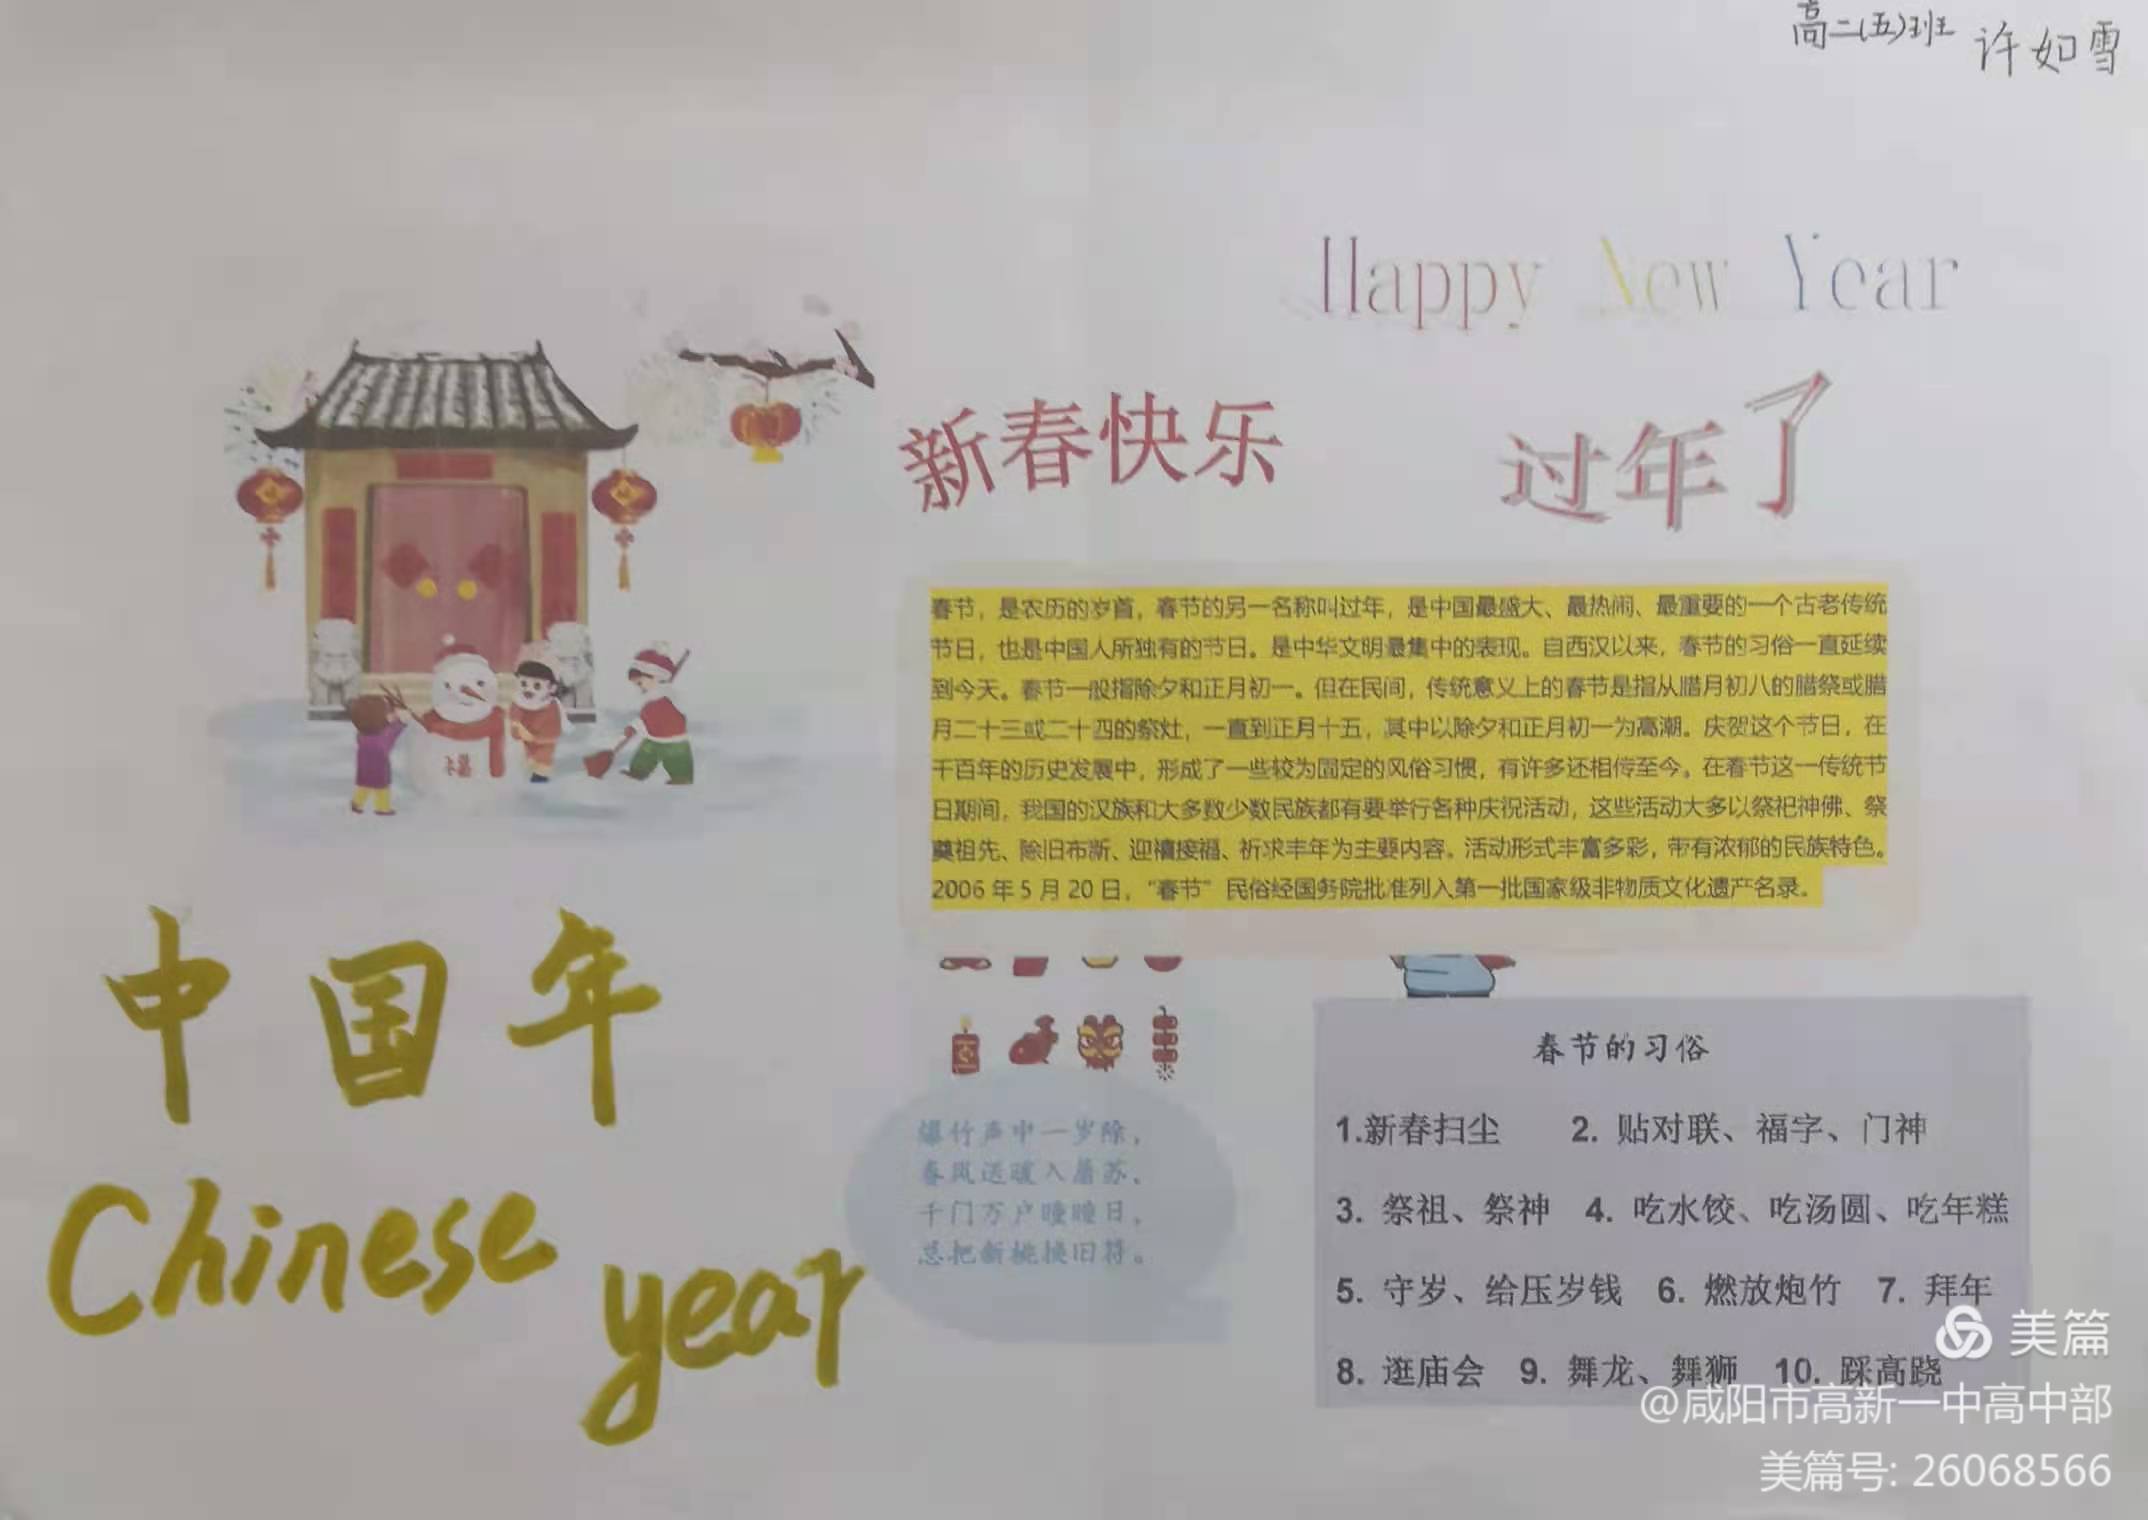 高二(五)班 许如雪
Happy New Year
新春快乐
过年了
春节，是农历的岁首，春节的另一名称叫过年，是中国最盛大、最热闹、最重要的一个古老传统
节日，也是中国人所独有的节日。是中华文明最集中的表现。自西汉以来，春节的习俗一直延续
到今天。春节一般指除夕和正月初一。但在民间，传统意义上的春节是指从腊月初八的腊祭或腊
月二十三或二十四的祭灶，一直到正月十五，其中以除夕和正月初一为高潮。庆贺这个节日，在
千百年的历史发展中，形成了一些较为固定的风俗习惯，有许多还相传至今。在春节这一传统节
日期间，我国的汉族和大多数少数民族都有要举行各种庆祝活动，这些活动大多以祭祀神佛、祭
奠祖先、除旧布新、迎禧接福、祈求丰年为主要内容。活动形式丰富多彩，带有浓郁的民族特色。
2006年5月20日，“春节”民俗经国务院批准列入第一批国家级非物质文化遗产名录。
福
中国年
Chinese
year
爆竹声中一岁除，
春风送暖入屠苏。
千门万户曈曈日，
总把新桃换旧符。
春节的习俗
1.新春扫尘 2. 贴对联、福字、门神
3. 祭祖、祭神 4. 吃水饺、吃汤圆、吃年糕
5. 守岁、给压岁钱 6. 燃放炮竹 7. 拜年
8. 逛庙会 9. 舞龙、舞狮 10. 踩高跷
美篇
@咸阳市高新一中高中部
美篇号: 26068566